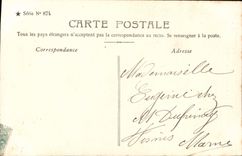 ★ Série Nº 874
CARTE POSTALE
Tous les pays étrangers n'acceptent pas la correspondance au recto. Se renseigner à la poste.
Correspondance
Adresse
Mademoiselle
Eugénie chez
Mr
Marne